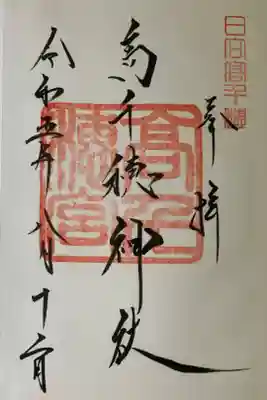 日向高千穂
奉拝
高千穂神社
高千
穂宮
令和五年八月十二日